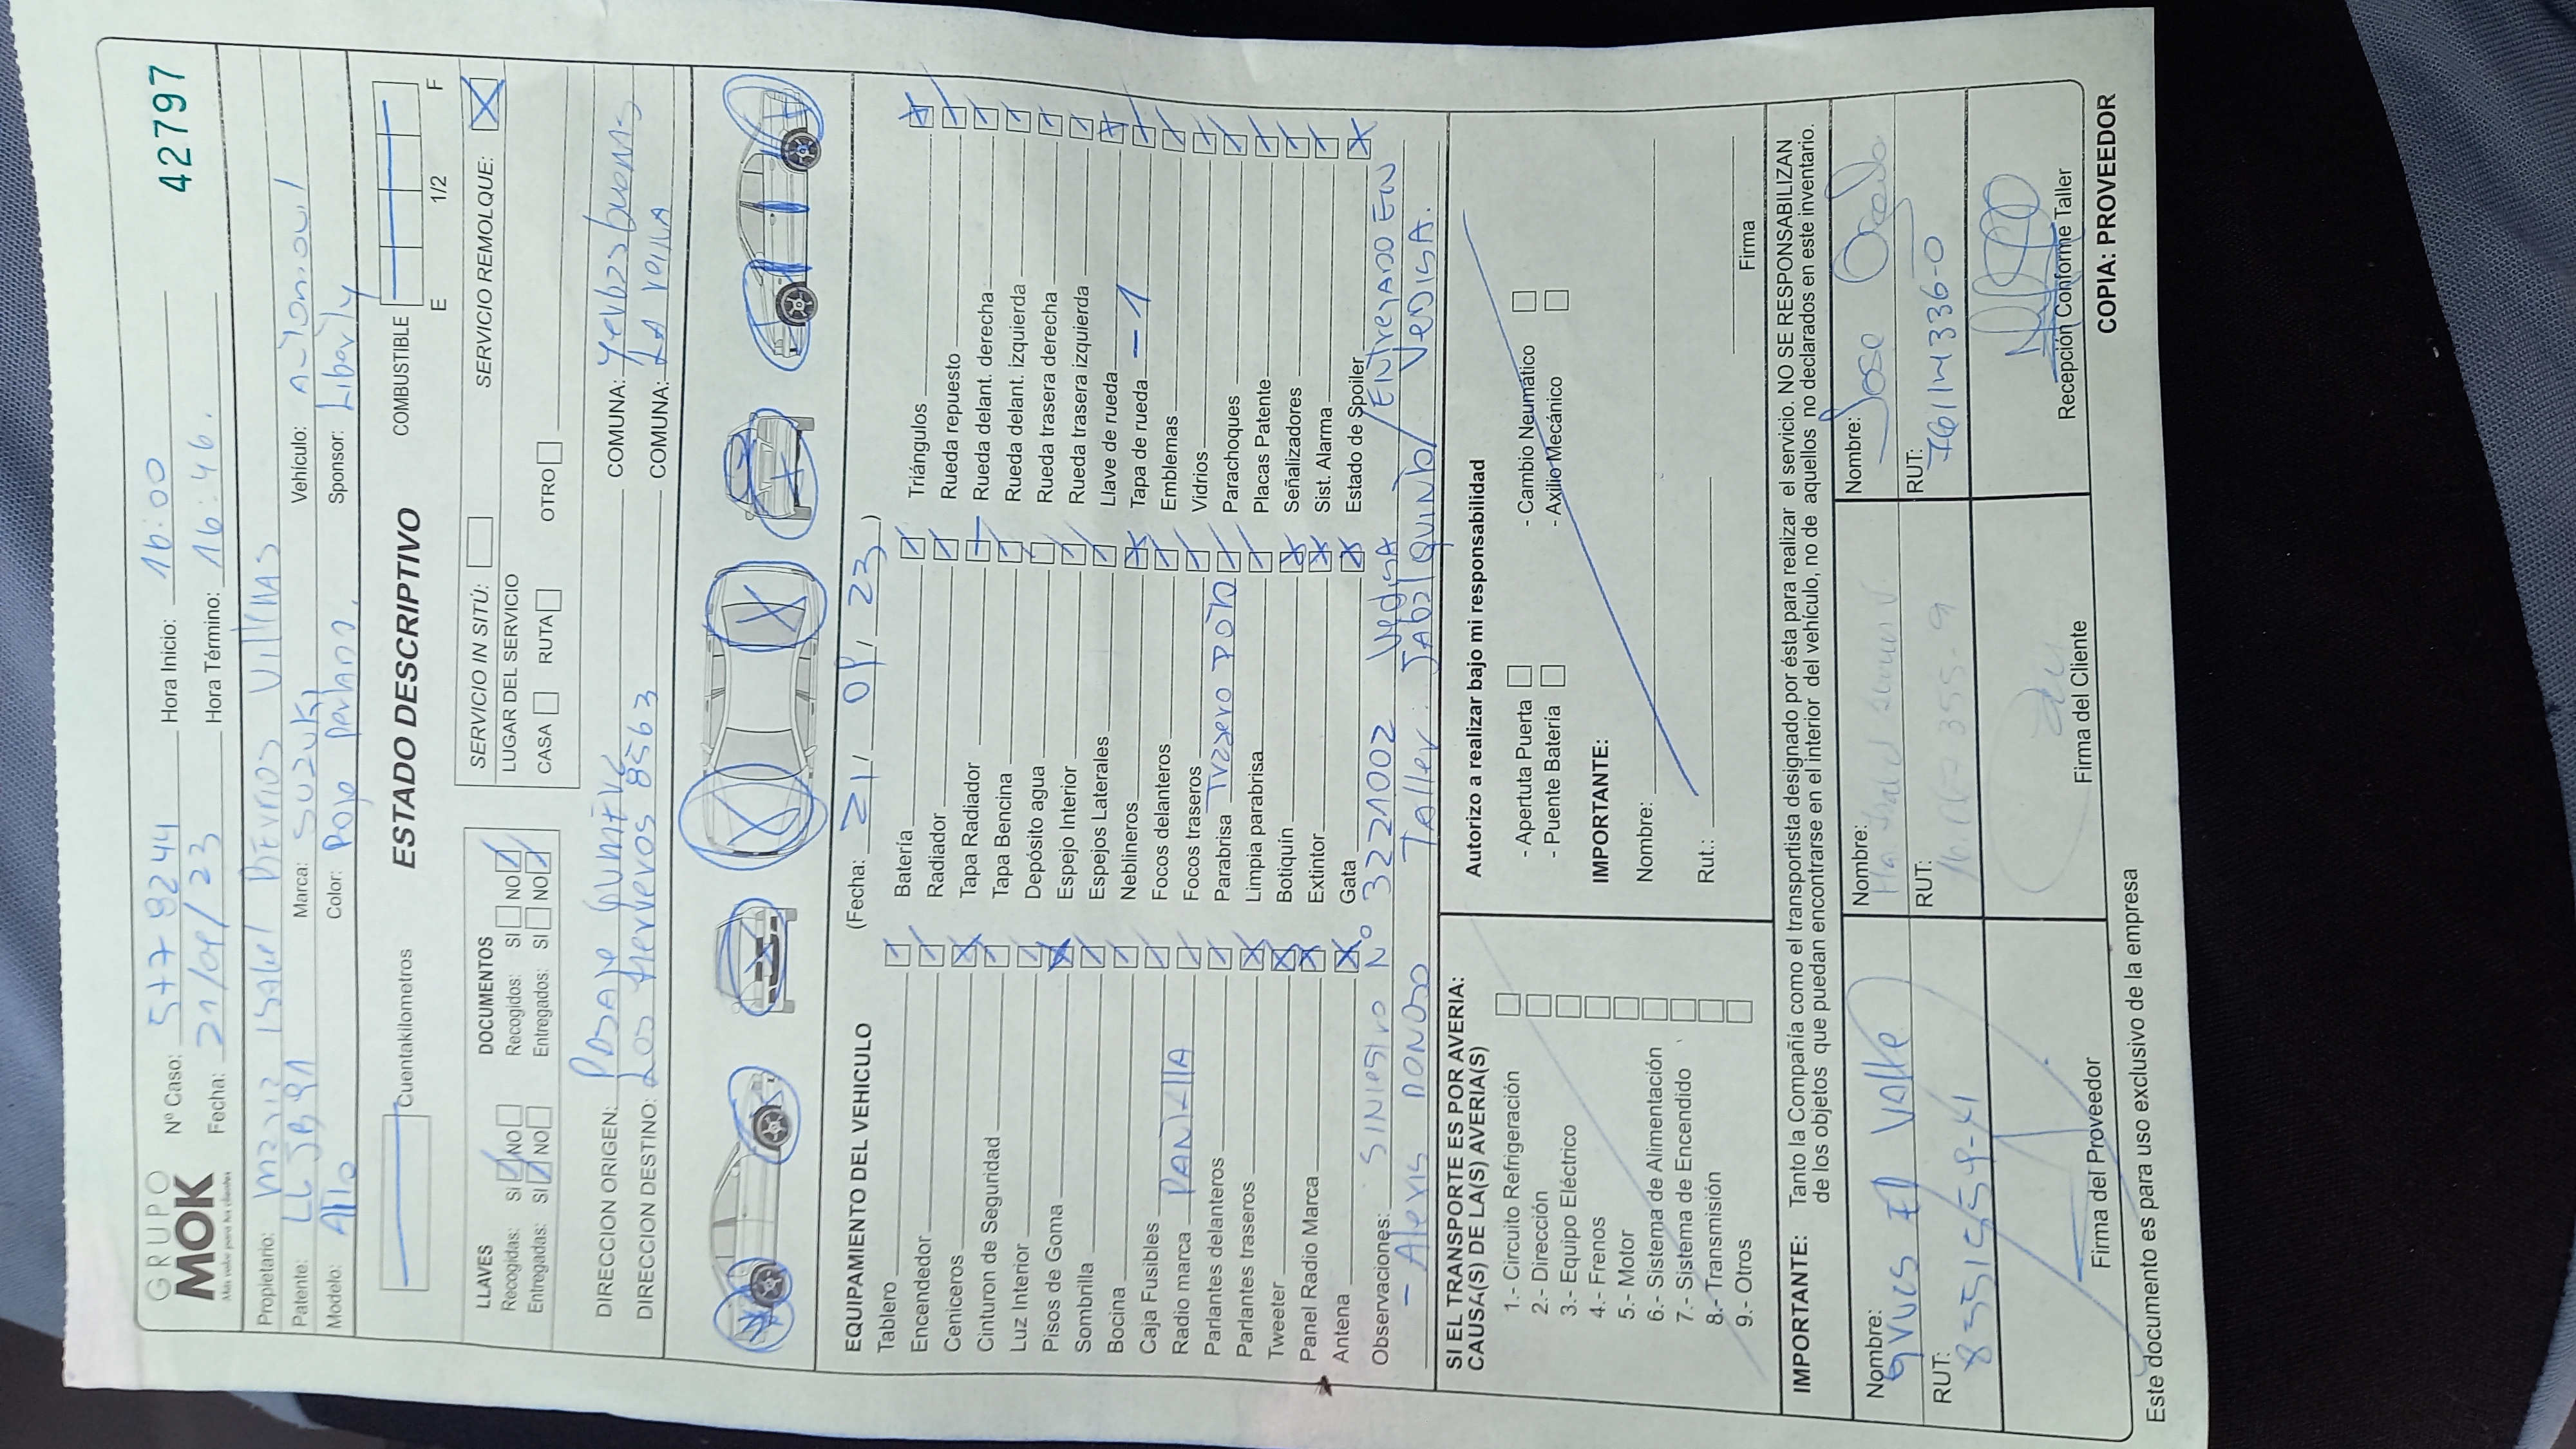 GRUPO
MOK
Más valor para tus clientes
Nº Caso: 5778244 Hora Inicio: 16:00 42797
Fecha: 21/09/23 Hora Término: 16:46.
Propietario: Isabel VillIAS
Patente: Marca: SUZUKI Vehículo:
Modelo: Alto Color: Rojo Sponsor: Liberty
Cuentakilometros ESTADO DESCRIPTIVO COMBUSTIBLE E 1/2 F
LLAVES DOCUMENTOS SERVICIO IN SITÚ: SERVICIO REMOLQUE:
Recogidas: SI NO Recogidos: SI NO LUGAR DEL SERVICIO
Entregadas: SI NO Entregados: SI NO CASA RUTA OTRO
DIRECCION ORIGEN: PASAJE COMUNA: Yerbas buenas
DIRECCION DESTINO: Los 8563 COMUNA: LA
EQUIPAMIENTO DEL VEHICULO (Fecha: 21, 09, 23)
Tablero Batería Triángulos
Encendedor Radiador Rueda repuesto
Ceniceros Tapa Radiador Rueda delant. derecha
Cinturon de Seguridad Tapa Bencina Rueda delant. izquierda
Luz Interior Depósito agua Rueda trasera derecha
Pisos de Goma Espejo Interior Rueda trasera izquierda
Sombrilla Espejos Laterales Llave de rueda
Bocina Neblineros Tapa de rueda - 1
Caja Fusibles Focos delanteros Emblemas
Radio marca PANTALLA Focos traseros Vidrios
Parlantes delanteros Parabrisa Trasero ROTO Parachoques
Parlantes traseros Limpia parabrisa Placas Patente
Tweeter Botiquín Señalizadores
Panel Radio Marca Extintor Sist. Alarma
Antena Gata Estado de Spoiler
Observaciones: SINIESTRO Nº 3221002 Vedisa / ENTREGADO EN
- Alexis DONOSO Taller / VEDISA.
SI EL TRANSPORTE ES POR AVERIA:
CAUSA(S) DE LA(S) AVERIA(S)
1.- Circuito Refrigeración
2.- Dirección
3.- Equipo Eléctrico
4.- Frenos
5.- Motor
6.- Sistema de Alimentación
7.- Sistema de Encendido
8.- Transmisión
9.- Otros
Autorizo a realizar bajo mi responsabilidad
- Apertuta Puerta - Cambio Neumático
- Puente Batería - Axilio Mecánico
IMPORTANTE:
Nombre:
Rut.: Firma
IMPORTANTE: Tanto la Compañía como el transportista designado por ésta para realizar el servicio. NO SE RESPONSABILIZAN
de los objetos que puedan encontrarse en el interior del vehículo, no de aquellos no declarados en este inventario.
Nombre: Nombre: Nombre:
Gruas El Valle Jose
RUT: RUT: RUT:
76114336-0
Firma del Proveedor Firma del Cliente Recepción Conforme Taller
Este documento es para uso exclusivo de la empresa COPIA: PROVEEDOR